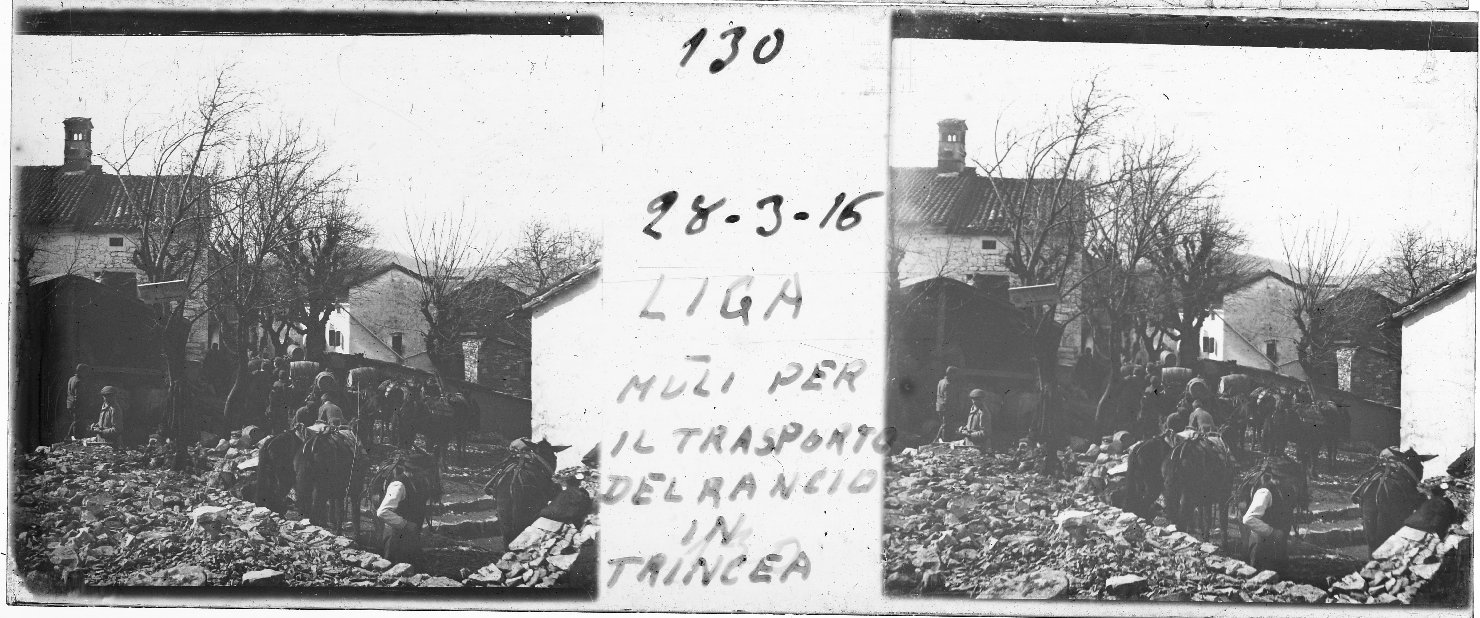 130
28-3-16
LIGA
MULI PER
IL TRASPORTO
DEL RANCIO
IN
TRINCEA